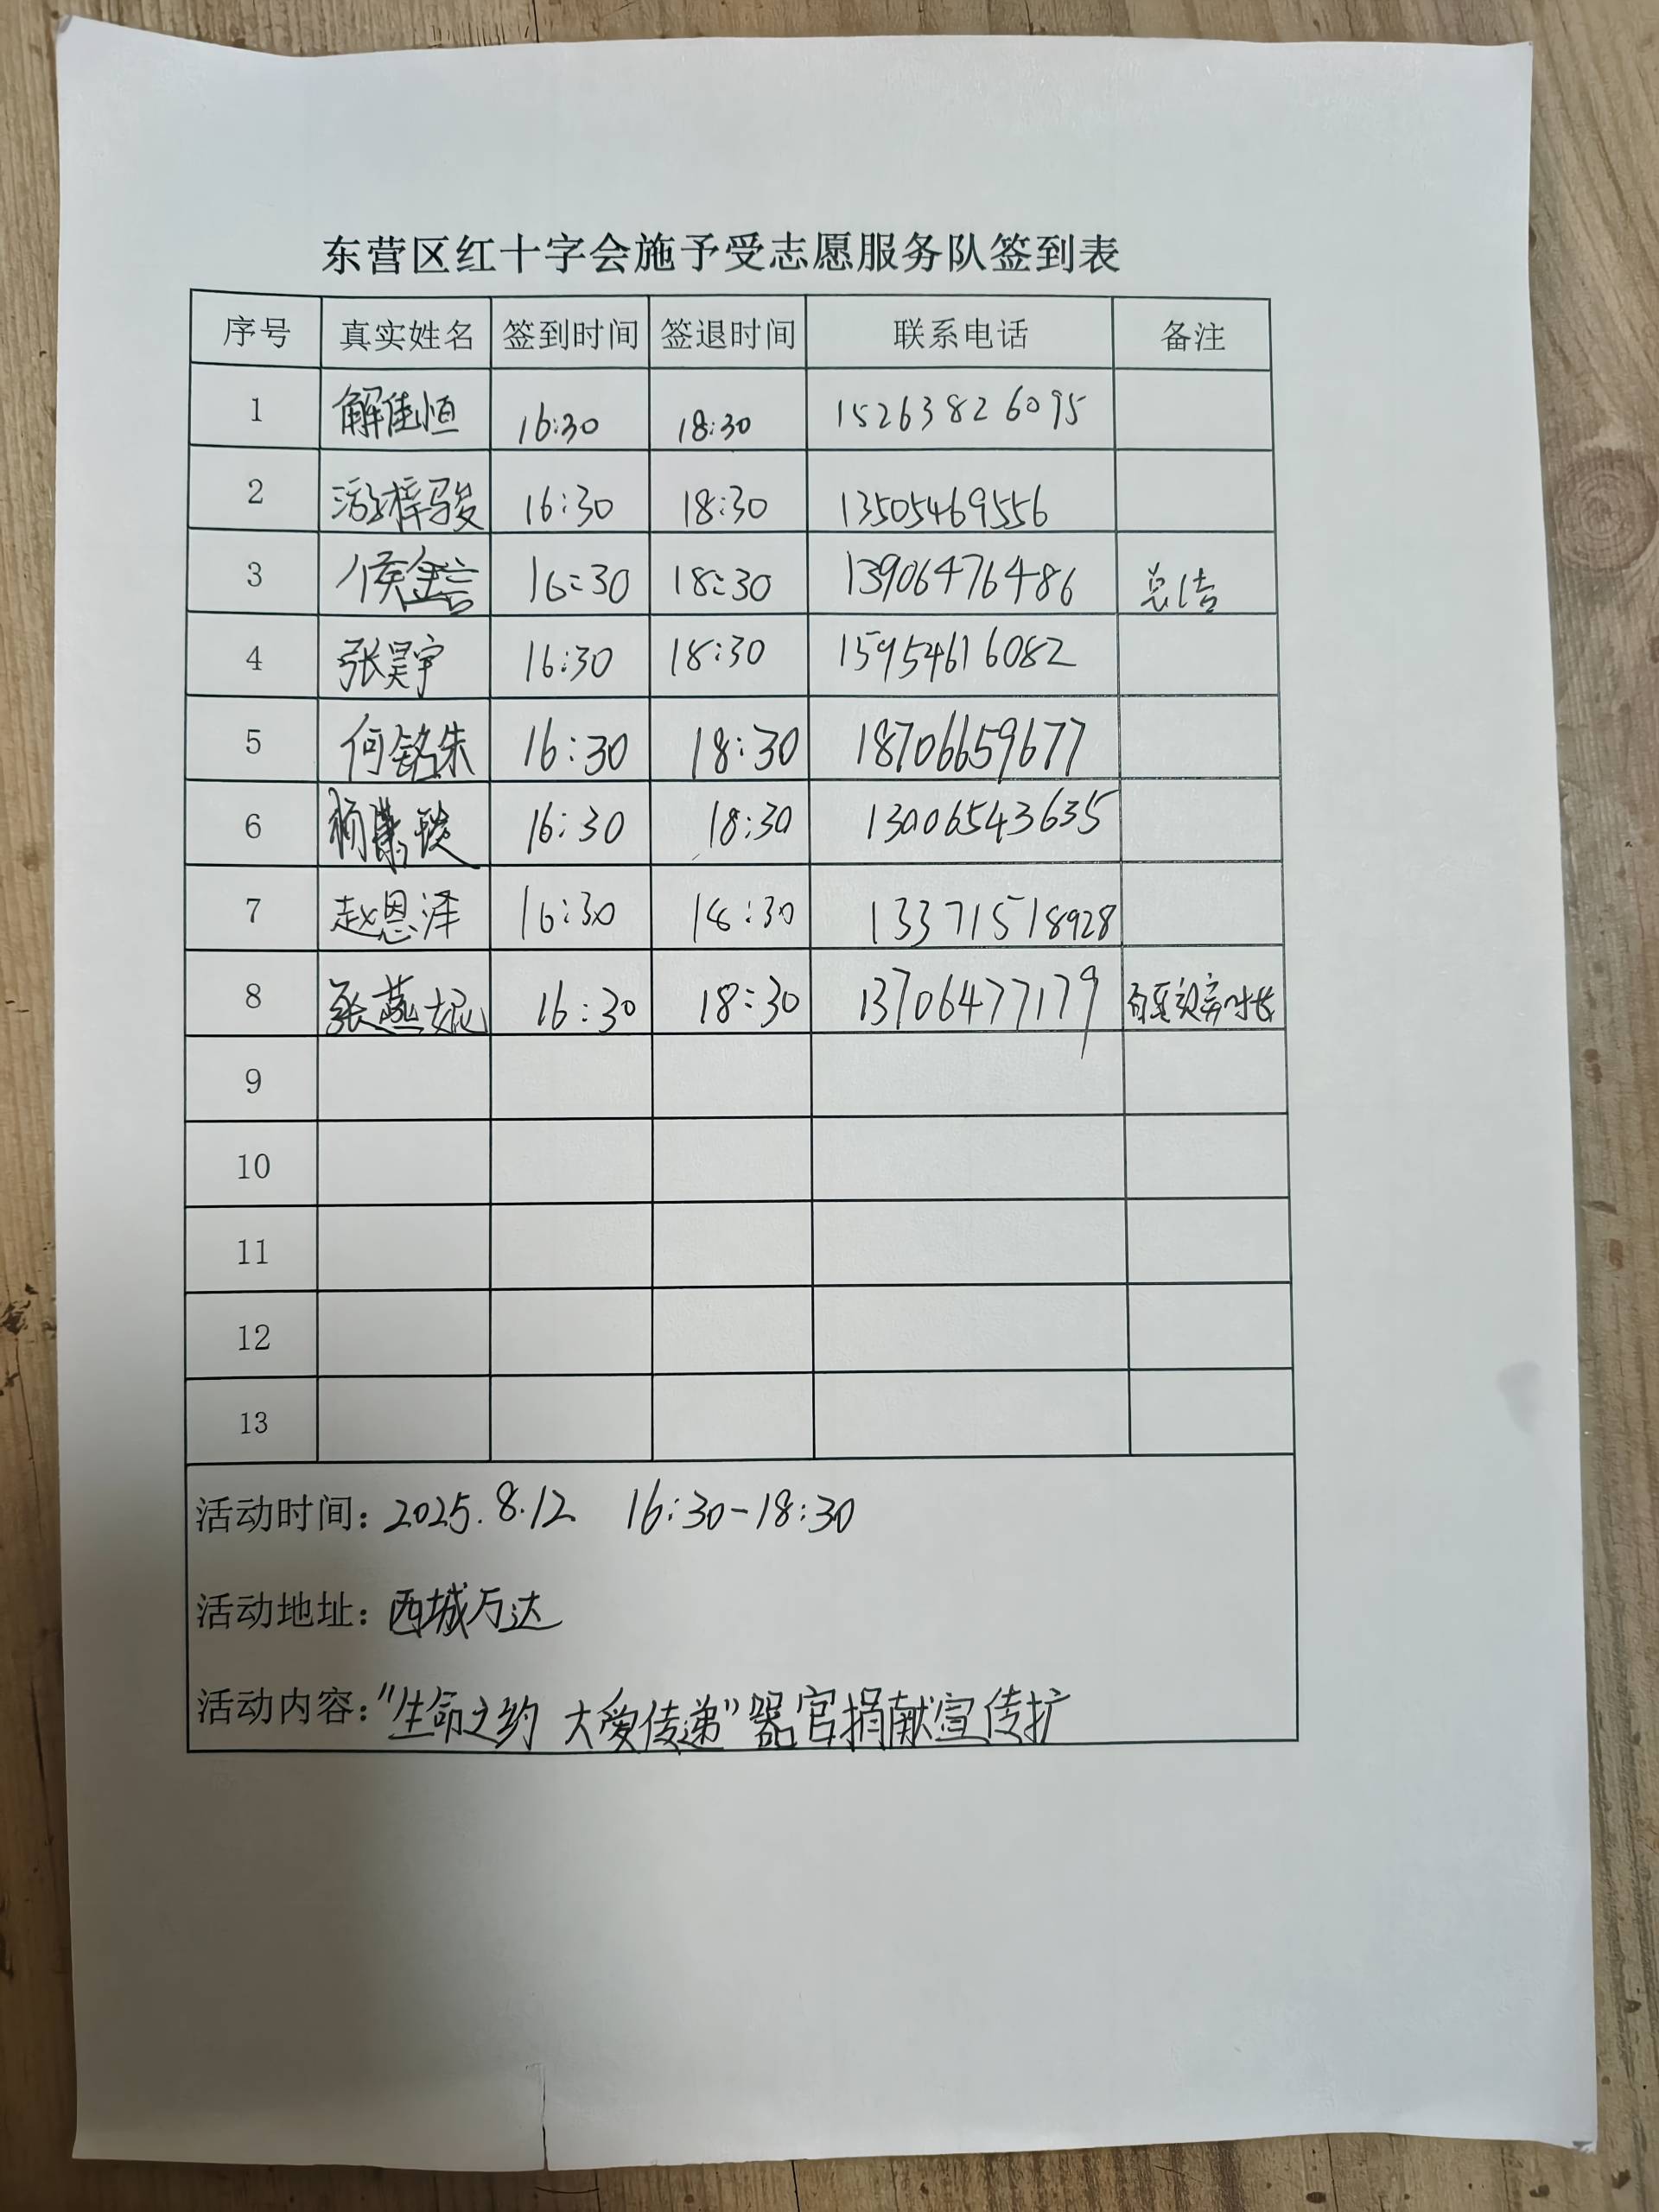 东营区红十字会施予受志愿服务队签到表
序号 真实姓名 签到时间 签退时间 联系电话 备注
1 解佳恒 16:30 18:30 15263826095
2 游梓骏 16:30 18:30 13505469556
3 侯 16:30 18:30 13906476486 总结
4 张昊宇 16:30 18:30 15954616082
5 何铭朱 16:30 18:30 18706659677
6 杨 16:30 18:30 13006543635
7 赵恩泽 16:30 18:30 13371518928
8 张燕妮 16:30 18:30 13706477179 时长
9
10
11
12
13
活动时间：2025.8.12 16:30-18:30
活动地址：西城万达
活动内容："生命之约 大爱传递"器官捐献宣传扩